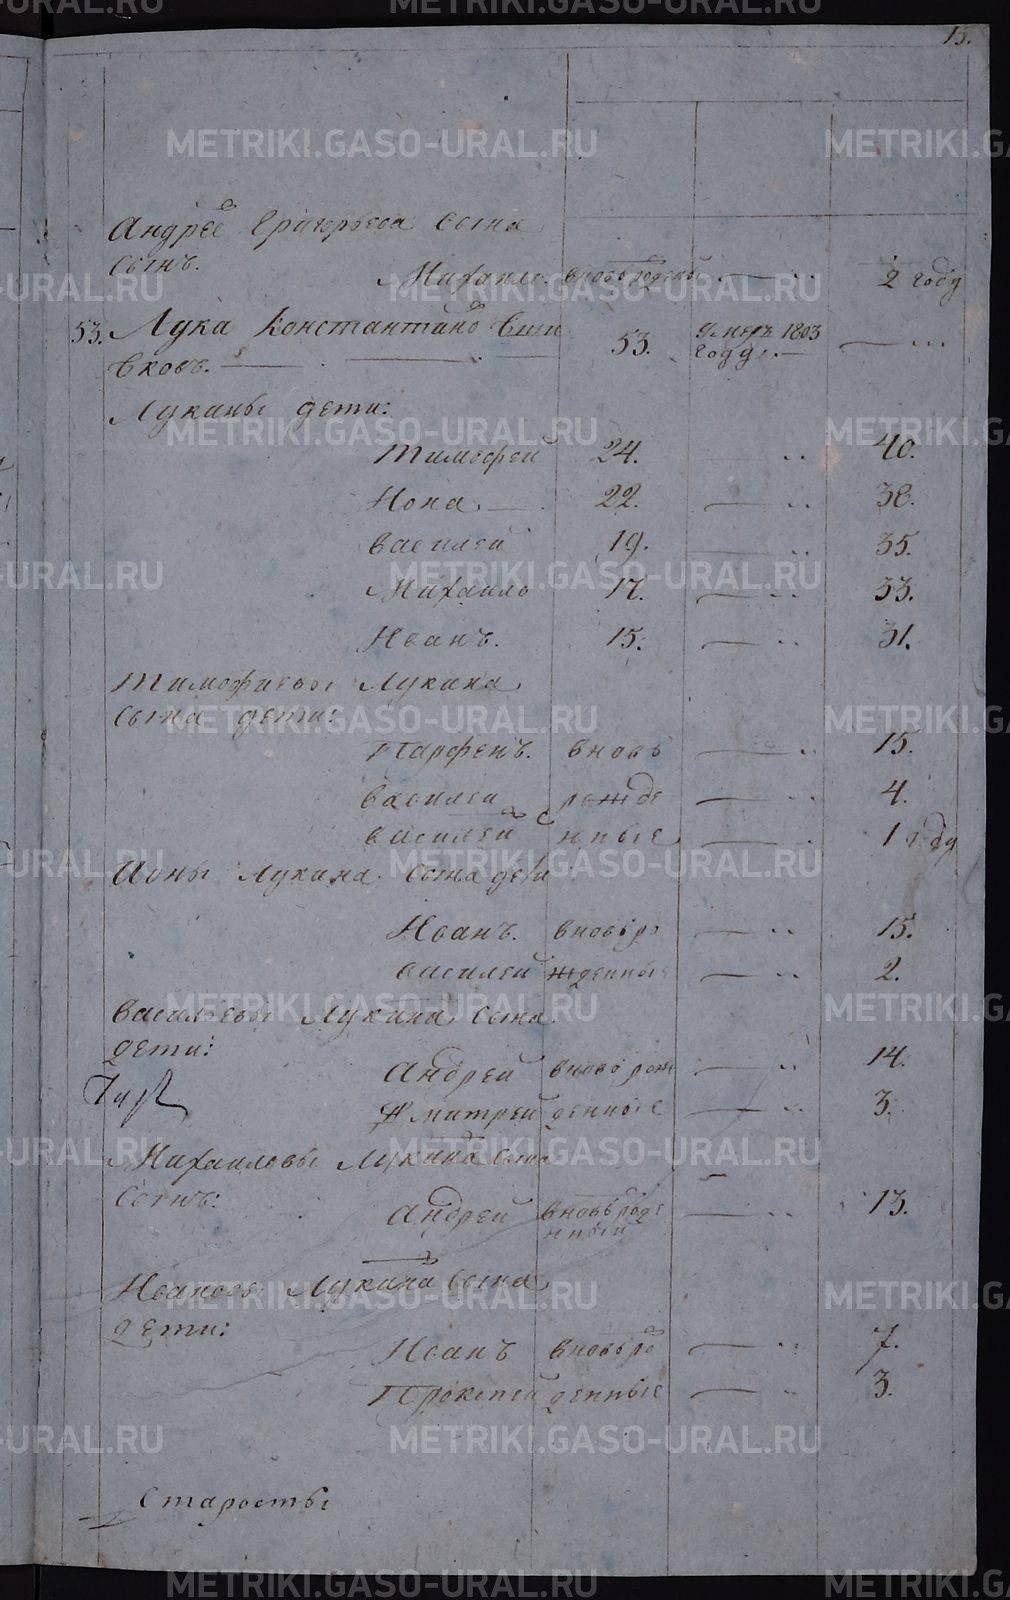 15.
Андрее Григорьева сына
сынъ.
Михаило вновьрожденный 2 году
53. Лука Константинов Виш 53. умеръ 1803 году
вковъ.
Лукины дети:
Тимофей 24. 40.
Иона 22. 38.
Василей 19. 35.
Михаило 17. 33.
Иванъ. 15. 31.
Тимофиевы Лукина
сына дети:
Парфенъ. вновь 15.
Василей рожде 4.
Василей нные 1 году
Ионы Лукина сына дети
Иванъ. вновьро 15.
Василей жденные 2.
Васильевы Лукина сына
дети:
Андрей вноворож 14.
Дмитрей денные 3.
Михаиловы Лукина сына
сынъ:
Андрей вновьрожде 13.
нный
Ивановы Лукина сына
дети:
Иванъ вновьро 7.
Прокопей жденные 3.
Старосты
METRIKI.GASO-URAL.RU